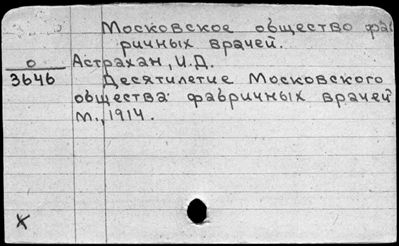 Московское общество фаб
ричных врачей.
О Астрахан, И.Д.
3646 Десятилетие Московского
общества фабричных врачей
М., 1914.
X